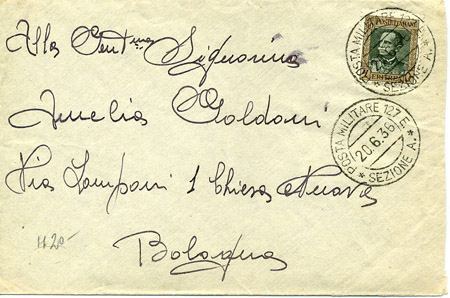 POSTE ITALIANE
POSTA MILITARE 127 E. * SEZIONE A. *
Alla Gent.ma Signorina
Amelia Goldoni
POSTA MILITARE 127 E. * SEZIONE A. *
20.6.36
Via 1 Chiesa Nuova
Bologna